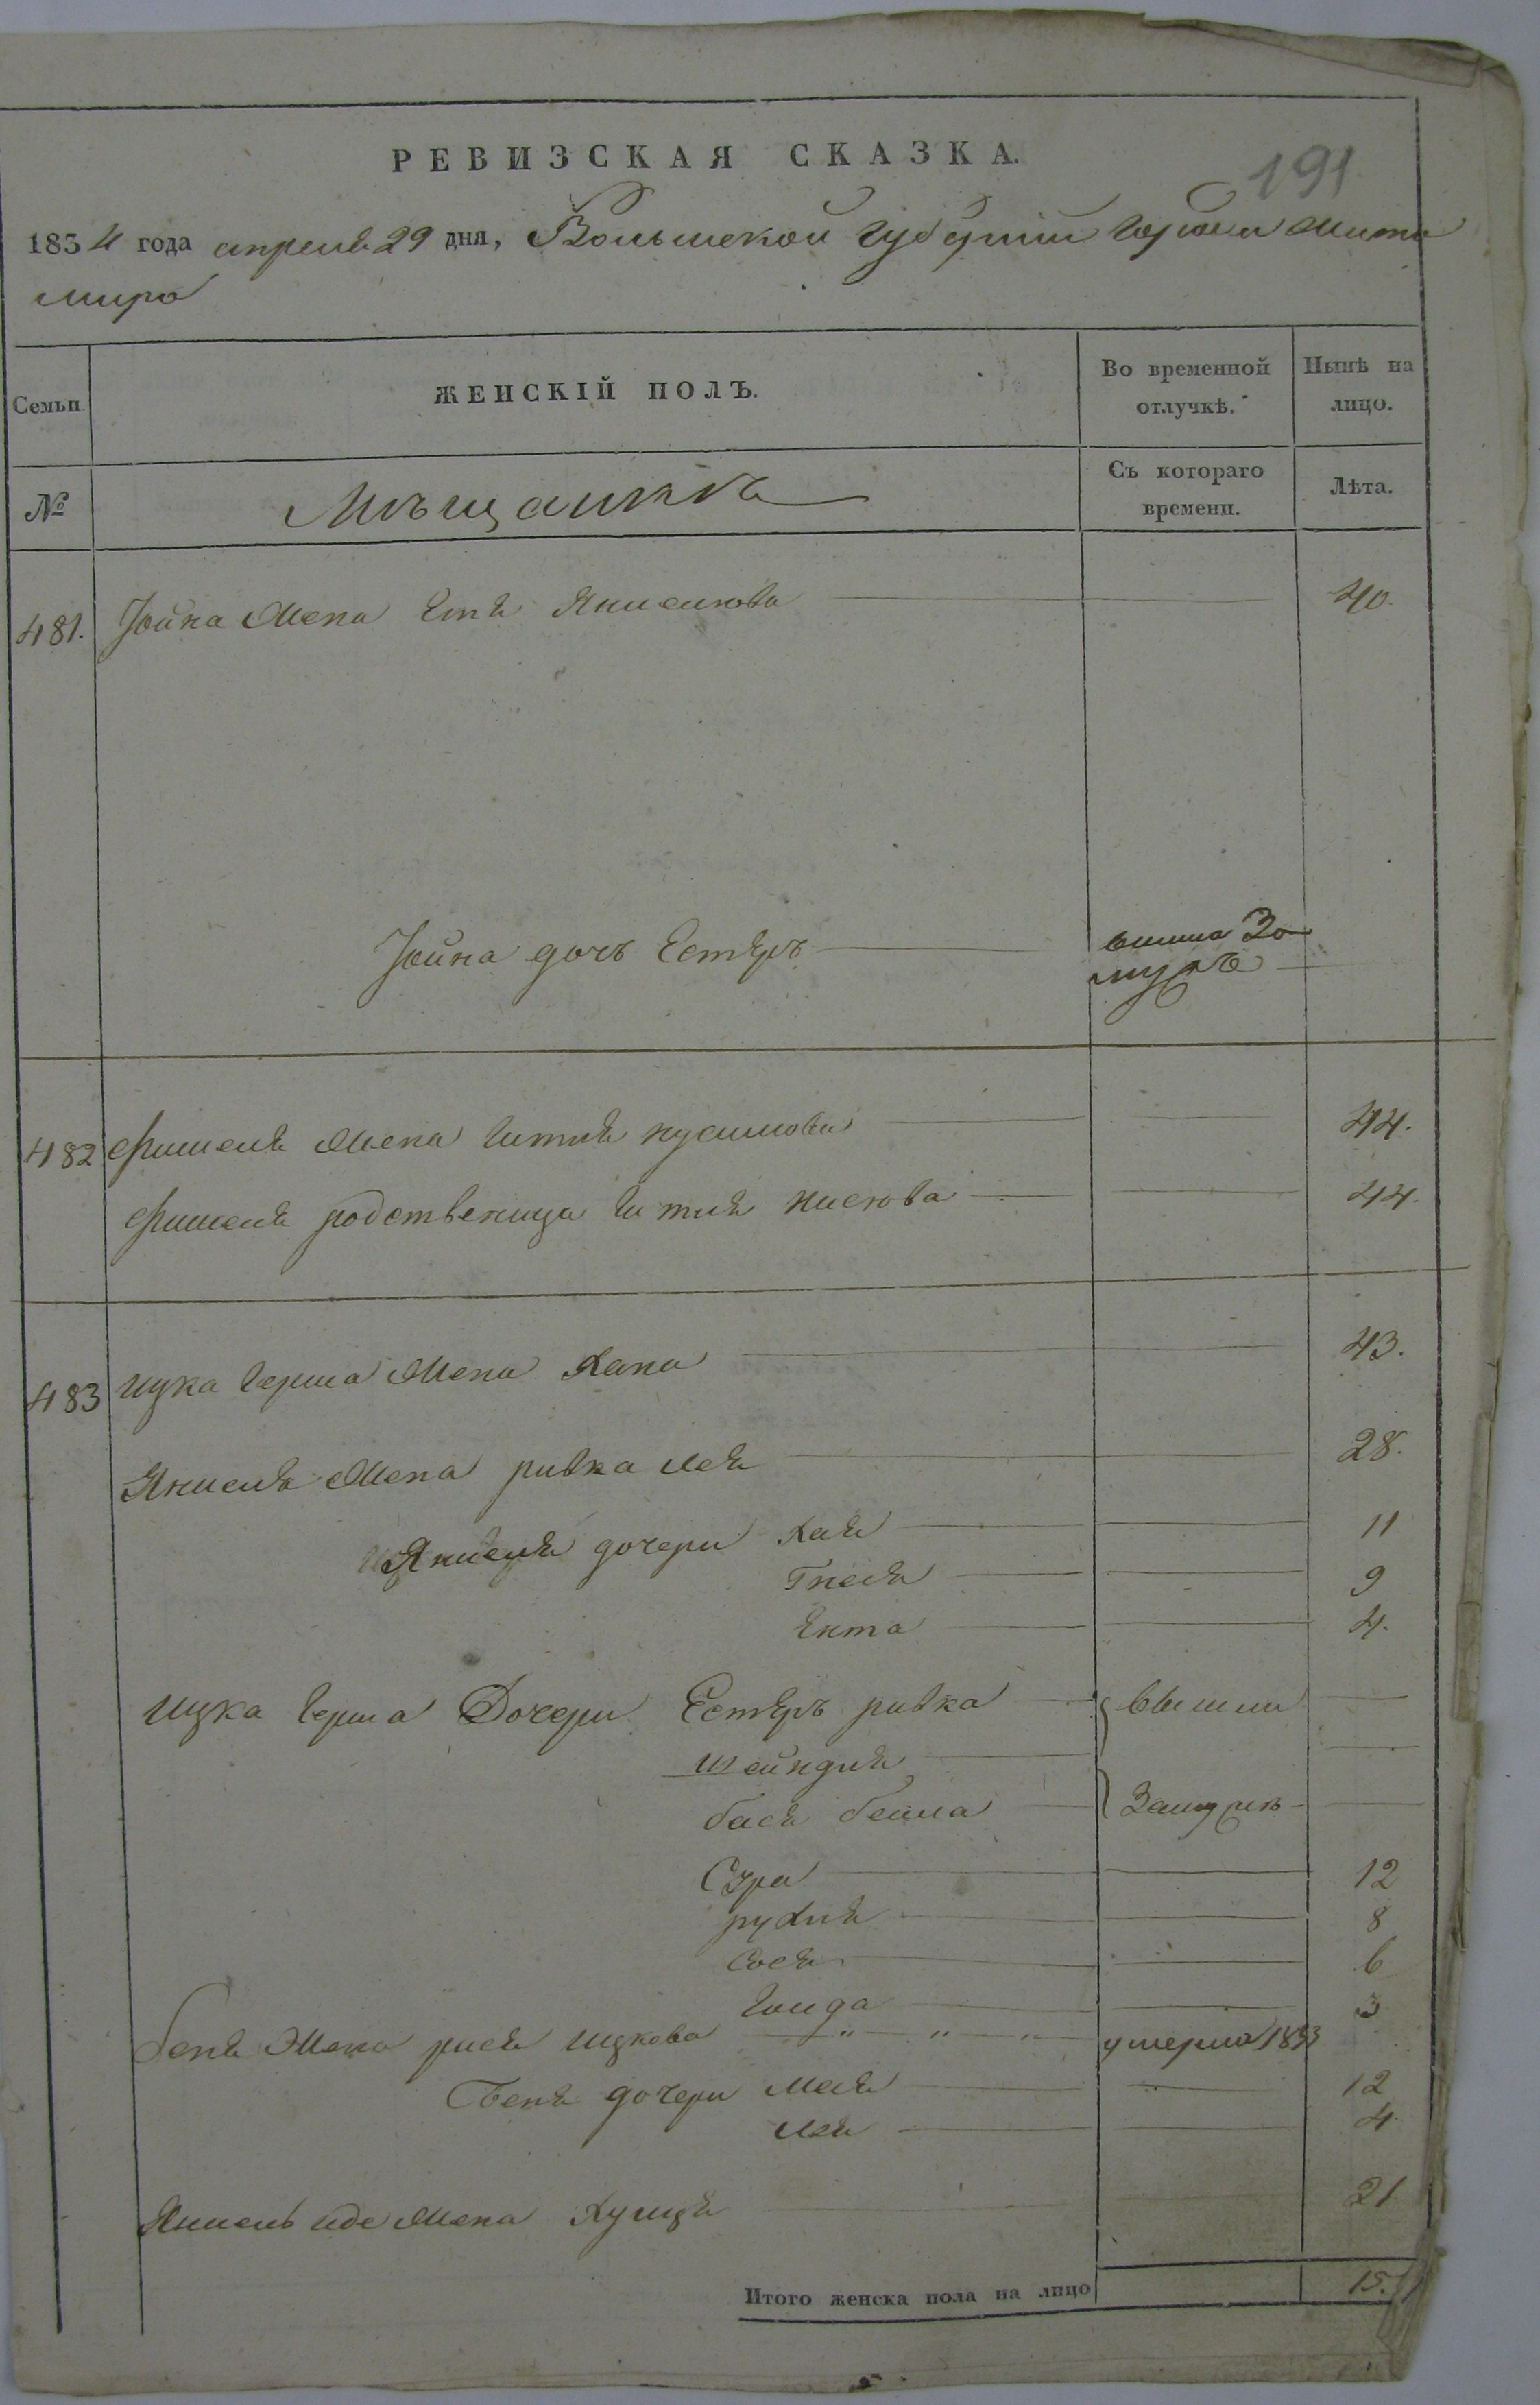 РЕВИЗСКАЯ СКАЗКА.
191
1834 года апреля 29 дня, Волынской Губерніи города Жито
мира
Семьи
ЖЕНСКІЙ ПОЛЪ.
Во временной отлучкѣ.
Нынѣ на лицо.
№
Мѣщанинъ
Съ котораго времени.
Лѣта.
481. Іойна Жена Етя Янкелюва 40.
Іойна дочь Естѣръ вишла За
мужъ
482 Фишеля Жена Гитля 44.
Фишеля родственица Гитля 44.
483 Ицка Герша Жена Хана 43.
Янкеля Жена ривка лея 28.
Янкеля дочери Хая 11
Гнеся 9
Ента 4.
Ицка Герша Дочери Естѣръ ривка вышли
шейндля
бася бейла Замужъ
Сура 12
рухля 8
Сося 6
Голда 3
беня Жена рися Ицкова умерла 1833
Беня дочери 12
лея 4
Янкель иде Жена 21
Итого женска пола на лицо 15.